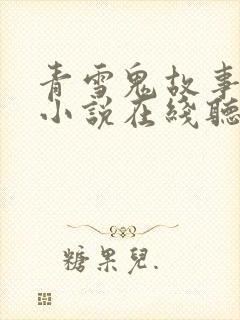 青雪鬼故事
小説在綫聽
糖果兒.